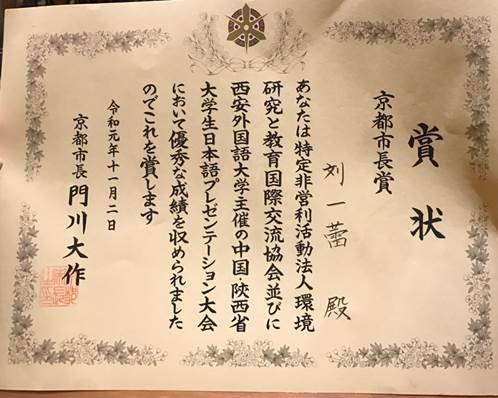 賞状
京都市長賞
刘一蕾 殿
あなたは特定非営利活動法人環境
研究と教育国際交流協会並びに
西安外国語大学主催の中国・陝西省
大学生日本語プレゼンテーション大会
において優秀な成績を収められました
のでこれを賞します
令和元年十一月二日
京都市長 門川大作